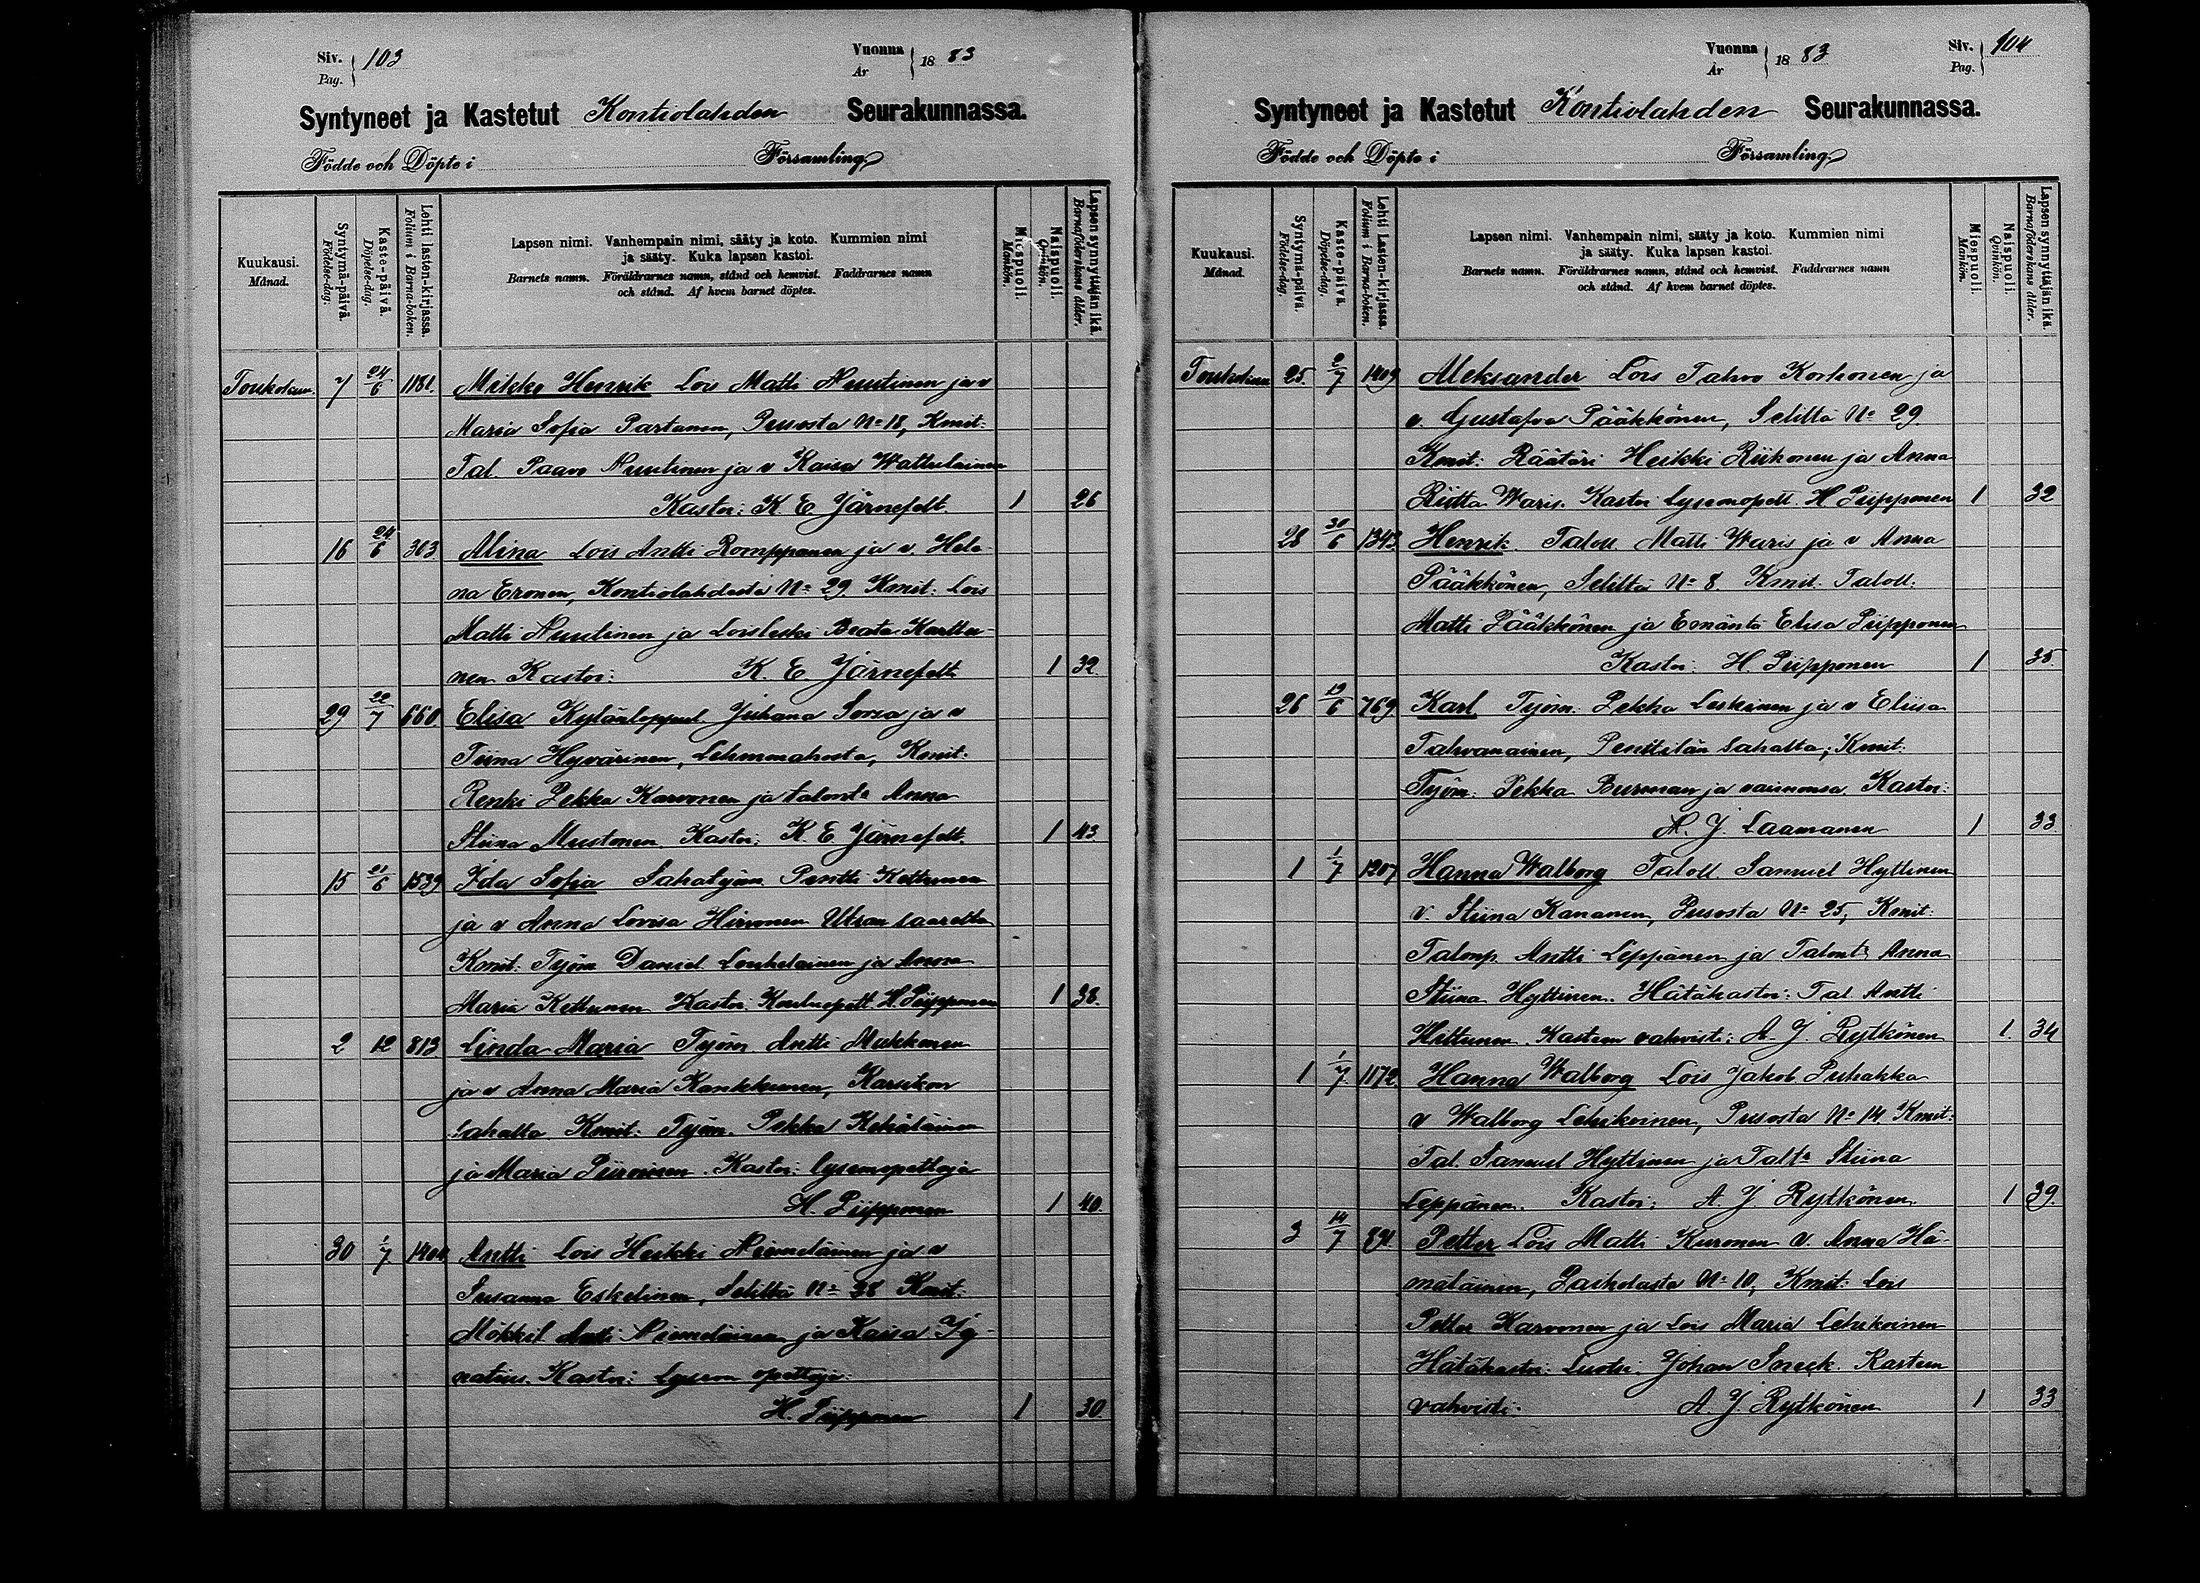 Siv. Pag. 103 Vuonna År 1883
Syntyneet ja Kastetut Kontiolahden Seurakunnassa.
Födde och Döpte i Församling
Kuukausi. Månad.
Syntymä-päivä. Födelse-dag.
Kaste-päivä. Döpelse-dag.
Lehti lasten-kirjassa. Folium i Barna-boken.
Lapsen nimi. Vanhempain nimi, sääty ja koto. Kummien nimi
ja sääty. Kuka lapsen kastoi.
Barnets namn. Föräldrarnes namn, stånd och hemvist. Faddrarnes namn
och stånd. Af hvem barnet döptes.
Miespuoli. Mankön.
Naispuoli. Qvinkön.
Lapsen synnyttäjän ikä. Barnaföderskans ålder.
Toukokuu. 7 24/6 1181. Mikko Henrik Lois Matti Nuutinen ja v
Maria Sofia Partanen, Pusosta No 18, Kmit:
Tal. Paavo Nuutinen ja v Kaisa Wattulainen
Kastoi: K E Järnefelt. 1 26
16 24/6 303 Alina Lois Antti Romppanen ja v. Hele-
na Eronen, Kontiolahdesta No 29 Kmit: Lois
Matti Nuutinen ja Loisleski Beata Karttu
nen Kastoi: K. E Järnefelt 1 32.
29 22/7 660. Elisa Kylänloppul. Juhana Sorsa ja v
Tiina Hyvärinen, Lehmonahosta, Kmit:
Renki Pekka Karvonen ja talont: Anna
Stiina Mustonen. Kastoi: K. E Järnefelt. 1 43.
15 21/6 1539 Ida Sofia Sahatyöm Pentti Kettunen
ja v Anna Lovisa Hirvonen Utran saarelta
Kmit: Työm Daniel Louhelainen ja Anna
Maria Kettunen Kastoi: Koulu opett H. Piipponen 1 38.
2 12 813 Linda Maria Työm. Antti Mukkonen
ja v Anna Maria Kankkunen, Karsikon
sahalta Kmit: Työm. Pekka Kehäläinen
ja Maria Piiroinen. Kastoi: lyseonopettaja
H. Piipponen 1 40.
30 1/7 1400 Antti Lois Heikki Niemeläinen ja v
Susanna Eskelinen, Seliltä No 38 Kmit.
Mökkil Antti Niemeläinen ja Kaisa Ig-
natius. Kastoi: Lyseon opettaja:
H. Piipponen 1 30
Vuonna År 1883 Siv. Pag. 104
Syntyneet ja Kastetut Kontiolahden Seurakunnassa.
Födde och Döpte i Församling
Kuukausi. Månad.
Syntymä-päivä. Födelse-dag.
Kaste-päivä. Döpelse-dag.
Lehti Lasten-kirjassa. Folium i Barna-boken.
Lapsen nimi. Vanhempain nimi, sääty ja koto. Kummien nimi
ja sääty. Kuka lapsen kastoi.
Barnets namn. Föräldrarnes namn, stånd och hemvist. Faddrarnes namn
och stånd. Af hvem barnet döptes.
Miespuoli. Mankön.
Naispuoli. Qvinkön.
Lapsen synnyttäjän ikä. Barnaföderskans ålder.
Toukokuu 25. 2/7 1409 Aleksander Lois Tahvo Korhonen ja
v. Gustafva Pääkkönen, Seliltä No 29.
Kmit: Räätäri Heikki Riikonen ja Anna
Riitta Waris. Kastoi lyseonopett. H Piipponen 1 32
28 30/6 1343 Henrik. Taloll Matti Waris ja v Anna
Pääkkönen, Seliltä No 8. Kmit. Taloll.
Matti Pääkkönen ja Emäntä Elisa Piipponen
Kastoi: H. Piipponen 1 35
26 19/6 769 Karl Työm. Pekka Leskinen ja v Eliisa
Tahvanainen, Penttilän Sahalta; Kmit:
Työm: Pekka Burman ja vaimonsa. Kastoi:
A. J. Laamanen 1 33
1 1/7 1207 Hanna Walborg Taloll Samuel Hyttinen
v. Stiina Kananen, Pusosta No 25, Kmit:
Talonp. Antti Leppänen ja Talont: Anna
Stiina Hyttinen. Hätäkastoi: Tal Antti
Hettunen. Kasteen vahvisti: A. J. Rytkönen 1. 34
1 1/7. 1172 Hanna Walborg Lois Jakob Puhakka
v Walborg Lehikoinen, Pusosta No 14. Kmit:
Tal. Samuel Hyttinen ja Talt: Stiina
Leppänen. Kastoi: A. J. Rytkönen. 1 39.
3 14/7 Petter Lois Matti Kuronen v. Anna Hä-
mäläinen, Paiholasta No 10, Kmit: Lois
Petter Karvonen ja Lois Maria Lehikoinen
Hätäkastoi: Luotsi. Johan Sneck. Kasteen
vahvisti: A. J. Rytkönen 1 33